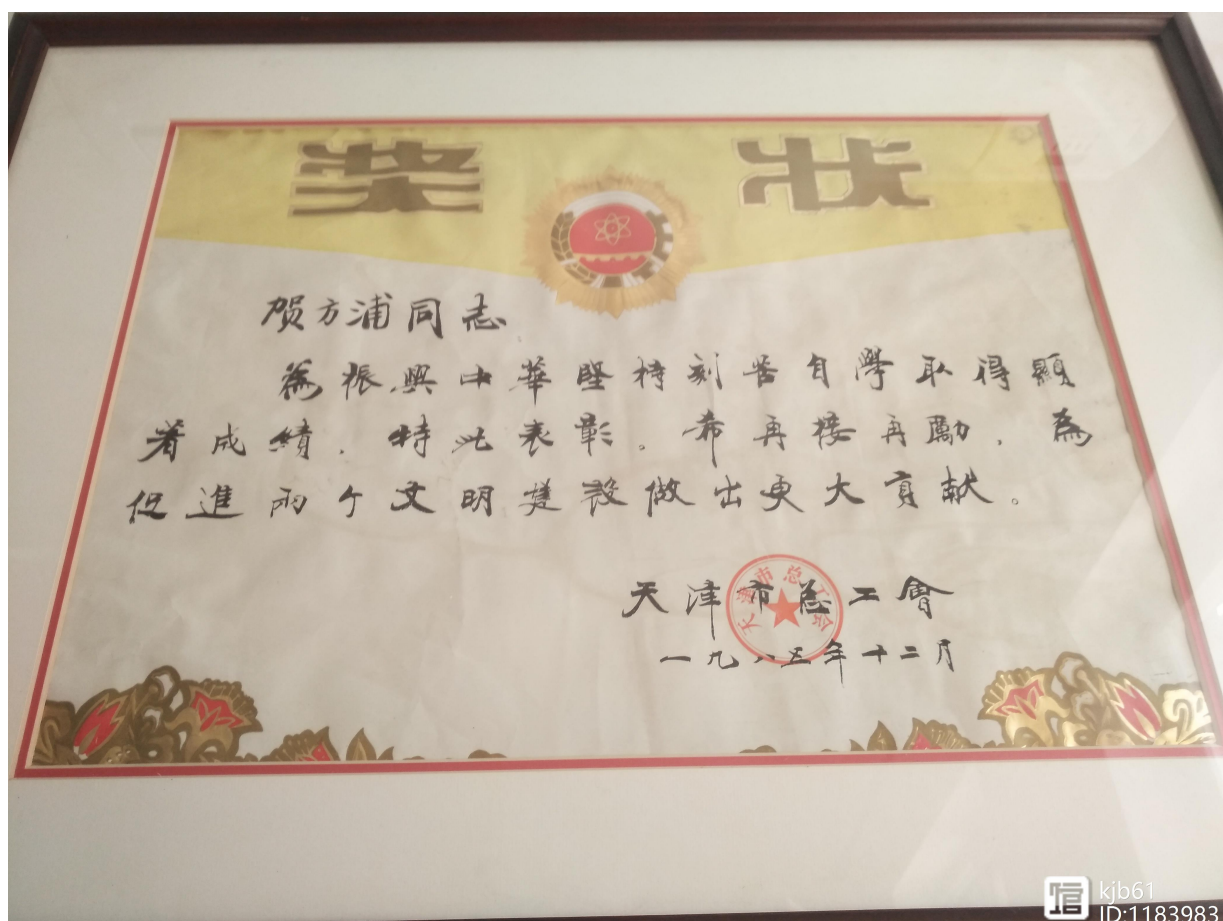 奖状
贺方浦同志
為振興中華堅持刻苦自學取得顯
着成績，特此表彰。希再接再勵，為
促進兩个文明建設做出更大貢献。
天津市总工會
天津市总工会
一九八五年十二月
kjb61
ID:1183983